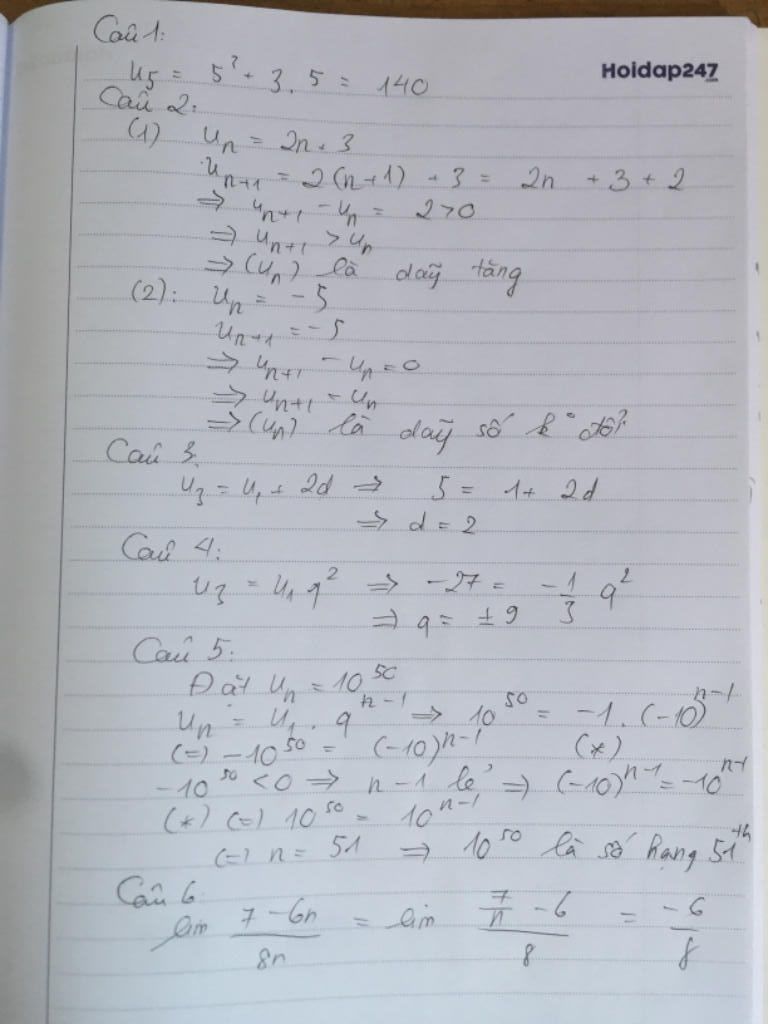 Câu 1:
Hoidap247
u₅ = 5³ + 3.5 = 140
Câu 2:
(1) uₙ = 2n + 3
uₙ₊₁ = 2(n+1) + 3 = 2n + 3 + 2
⇒ uₙ₊₁ - uₙ = 2 > 0
⇒ uₙ₊₁ > uₙ
⇒ (uₙ) là dãy tăng
(2): uₙ = -5
uₙ₊₁ = -5
⇒ uₙ₊₁ - uₙ = 0
⇒ uₙ₊₁ = uₙ
⇒ (uₙ) là dãy số k° đổi
Câu 3:
u₃ = u₁ + 2d ⇒ 5 = 1 + 2d
⇒ d = 2
Câu 4:
u₃ = u₁ q² ⇒ -27 = -1/3 q²
⇒ q = ±9
Câu 5:
Đặt uₙ = 10⁵⁰
uₙ = u₁ . qⁿ⁻¹ ⇒ 10⁵⁰ = -1 . (-10)ⁿ⁻¹
(=) -10⁵⁰ = (-10)ⁿ⁻¹ (*)
-10⁵⁰ < 0 ⇒ n-1 lẻ ⇒ (-10)ⁿ⁻¹ = -10ⁿ⁻¹
(*) (=) 10⁵⁰ = 10ⁿ⁻¹
(=) n = 51 ⇒ 10⁵⁰ là số hạng 51th
Câu 6
lim (7 - 6n)/(8n) = lim (7/n - 6)/8 = -6/8